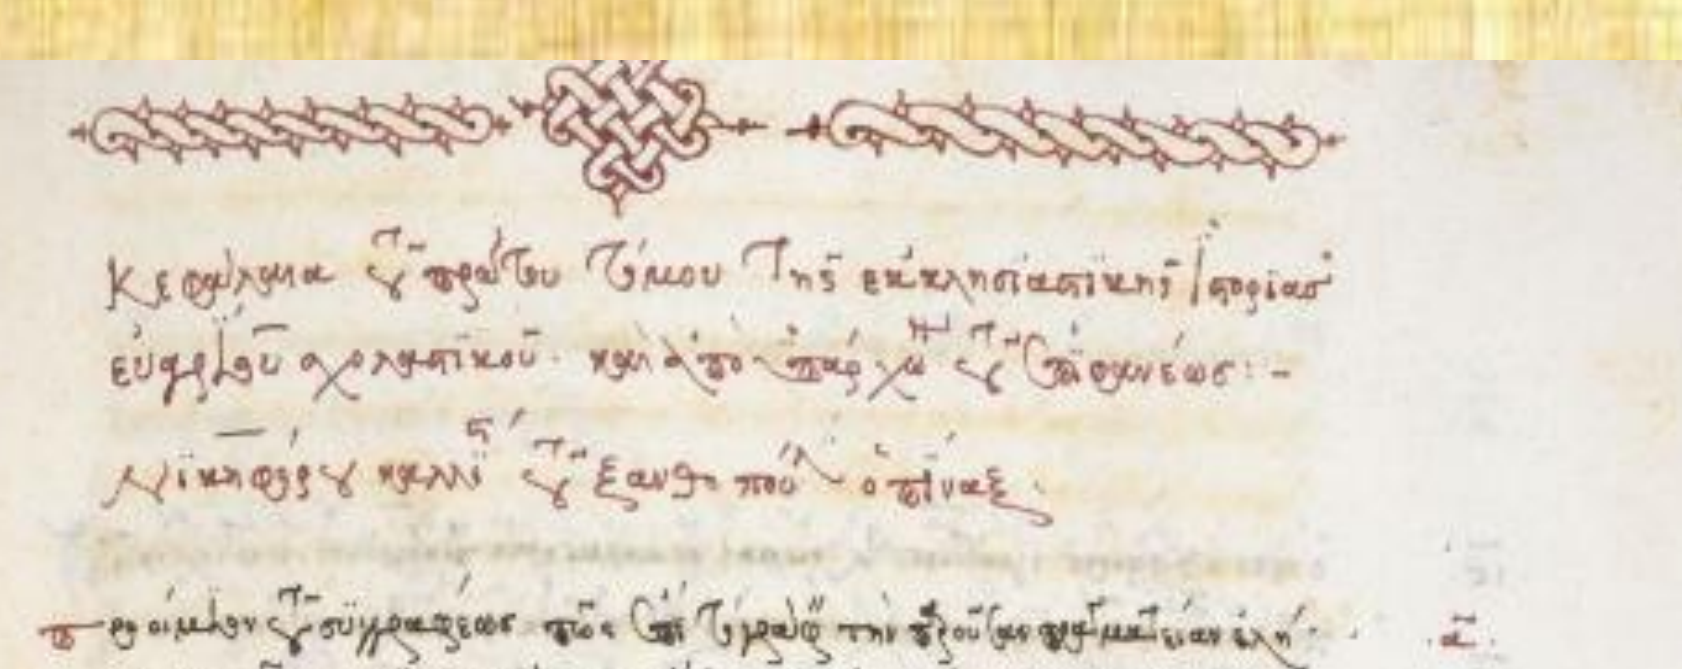 Κεφάλαια τοῦ πρώτου τόμου τῆς ἐκκλησιαστικῆς ἱστορίας
εὐαγρίου σχολαστικοῦ· καὶ ἀπὸ ἐπάρχων τοῦ ἐπιφανέως:-
Νικηφόρου καλλίστου τοῦ ξανθοπούλου ὁ πίναξ
Προοίμιον τοῦ συγγραφέως πῶς ἐπὶ τὸ γράφειν τὴν παροῦσαν πραγματείαν
α